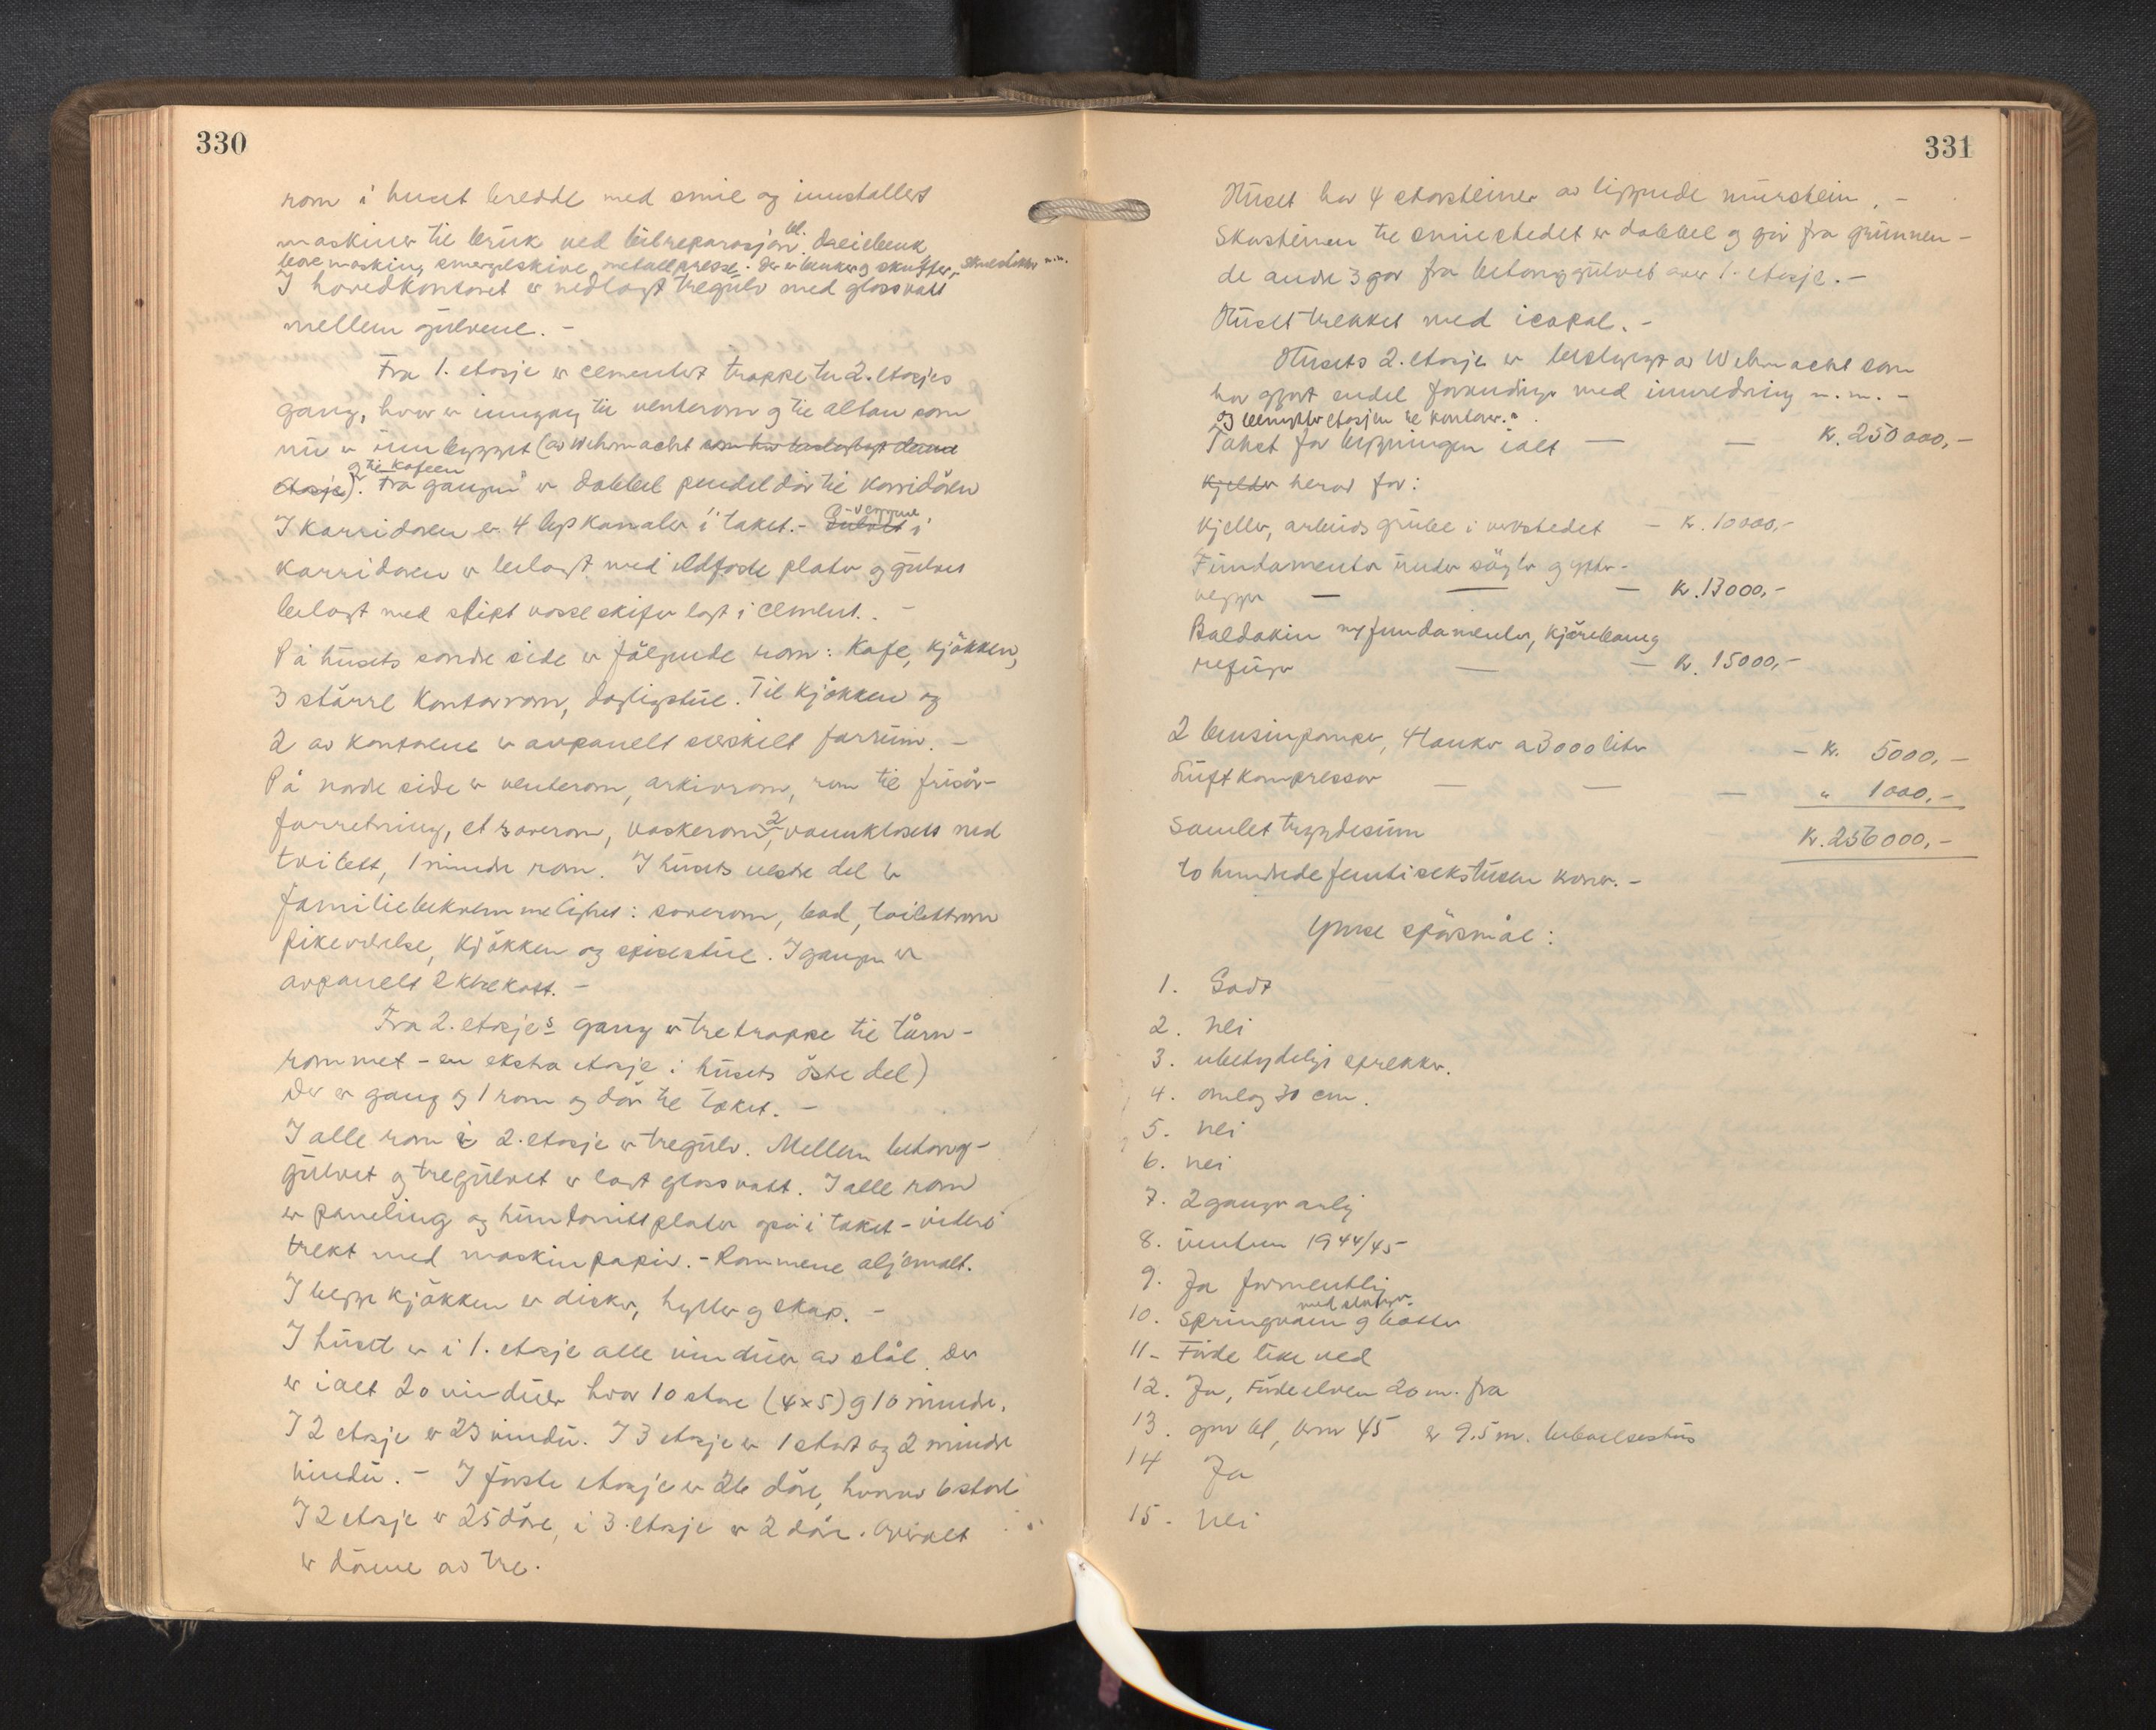 330
rom i huset bredde med smie og innstallert
maskiner til bruk ved bilreparasjon bl. dreiebenk
boremaskin, smergelskive, metallpresse. Der er benker og skuffer, skruestikker m.m.
I hovedkontoret er nedlagt tregulv med glassvatt
mellem gulvene. -
Fra 1. etasje er cementert trappe til 2. etasjes
gang, hvor er inngang til venterom og til altan som
nu er innbygget (av Wehrmacht som har beslaglagt denne
etasje). og til kafeen Fra gangen er dobbel pendeldør til korridoren
I korridoren er 4 lyskanaler i taket. - Gulvet i - veggene
korridoren er belagt med ildfaste plater og gulvet
belagt med slipt vosseskifer lagt i cement. -
På husets søndre side er følgende rom: Kafe, Kjøkken,
3 større kontorrom, dagligstue. Til kjøkken og
2 av kontorene er avpanelt særskilt forrum. -
På nordre side er venterom, arkivrom, rom til frisør-
forretning, et soverom, vaskerom, 2 vannklosett med
toilett, 1 mindre rom. I husets vestre del er
familiebekvemmeligheter: soverom, bad, toilettrom
pikeværelse, kjøkken og spisestue. I gangen er
avpanelt 2 klekott. -
Fra 2. etasjes gang er tretrappe til tårn-
rommet - en ekstra etasje i husets østre del)
Der er gang og 1 rom og dør til taket. -
I alle rom i 2. etasje er tregulv. Mellem betong-
gulvet og tregulvet er lagt glassvatt. I alle rom
er paneling og huntonittplater også i taket - videre
trekt med maskinpapir. - Rommene oljemalt.
I begge kjøkken er disker, hyller og skap. -
I huset er i 1. etasje alle vinduer av stål. Der
er ialt 20 vinduer hvor 10 store (4x5) og 10 mindre.
I 2 etasje er 23 vindu. I 3 etasje er 1 stort og 2 mindre
vindu. - I første etasje er 26 døre, hvorav 6 store
I 2 etasje er 25 døre, i 3. etasje er 2 døre. Overalt
er dørene av tre.
331
Huset har 4 skorsteiner av liggende murstein. -
Skorsteinen til smiestedet er dobbel og går fra grunnen -
de andre 3 går fra betonggulvet over 1. etasje. -
Huset trekket med icopal. -
Husets 2. etasje er beslaglagt av Wehrmacht som
har gjort endel forandringer med innredning m.m. -
og benytter etasjen til kontorer.
Takst for bygningen ialt — — Kr. 250 000,-
Kjelder herav for:
Kjeller, arbeidsgrube i verkstedet - Kr. 10000,-
Fundamenter under søyler og ytter-
vegger — — — Kr. 13000,-
Baldakin m/fundamenter, kjørebane og
refuger — — Kr. 15000,-
2 bensinpumper, 4 tanker a 3000 liter - Kr. 5000,-
Luftkompressor — — — " 1000,-
Samlet trygdesum Kr. 256000,-
to hundrede femti sekstusen kroner. -
Ymse spørsmål:
1. Godt
2. Nei
3. ubetydelige sprekker.
4. omlag 30 cm.
5. Nei
6. Nei
7. 2 ganger årlig
8. vinteren 1944/45
9. Ja formentlig
10. Springvann med slanger og bøtter
11- Førde like ved
12. Ja, Førdeelven 20 m. fra
13. gnr 21, bnr 45 er 9.5 m. beboelseshus
14 Ja
15. Nei